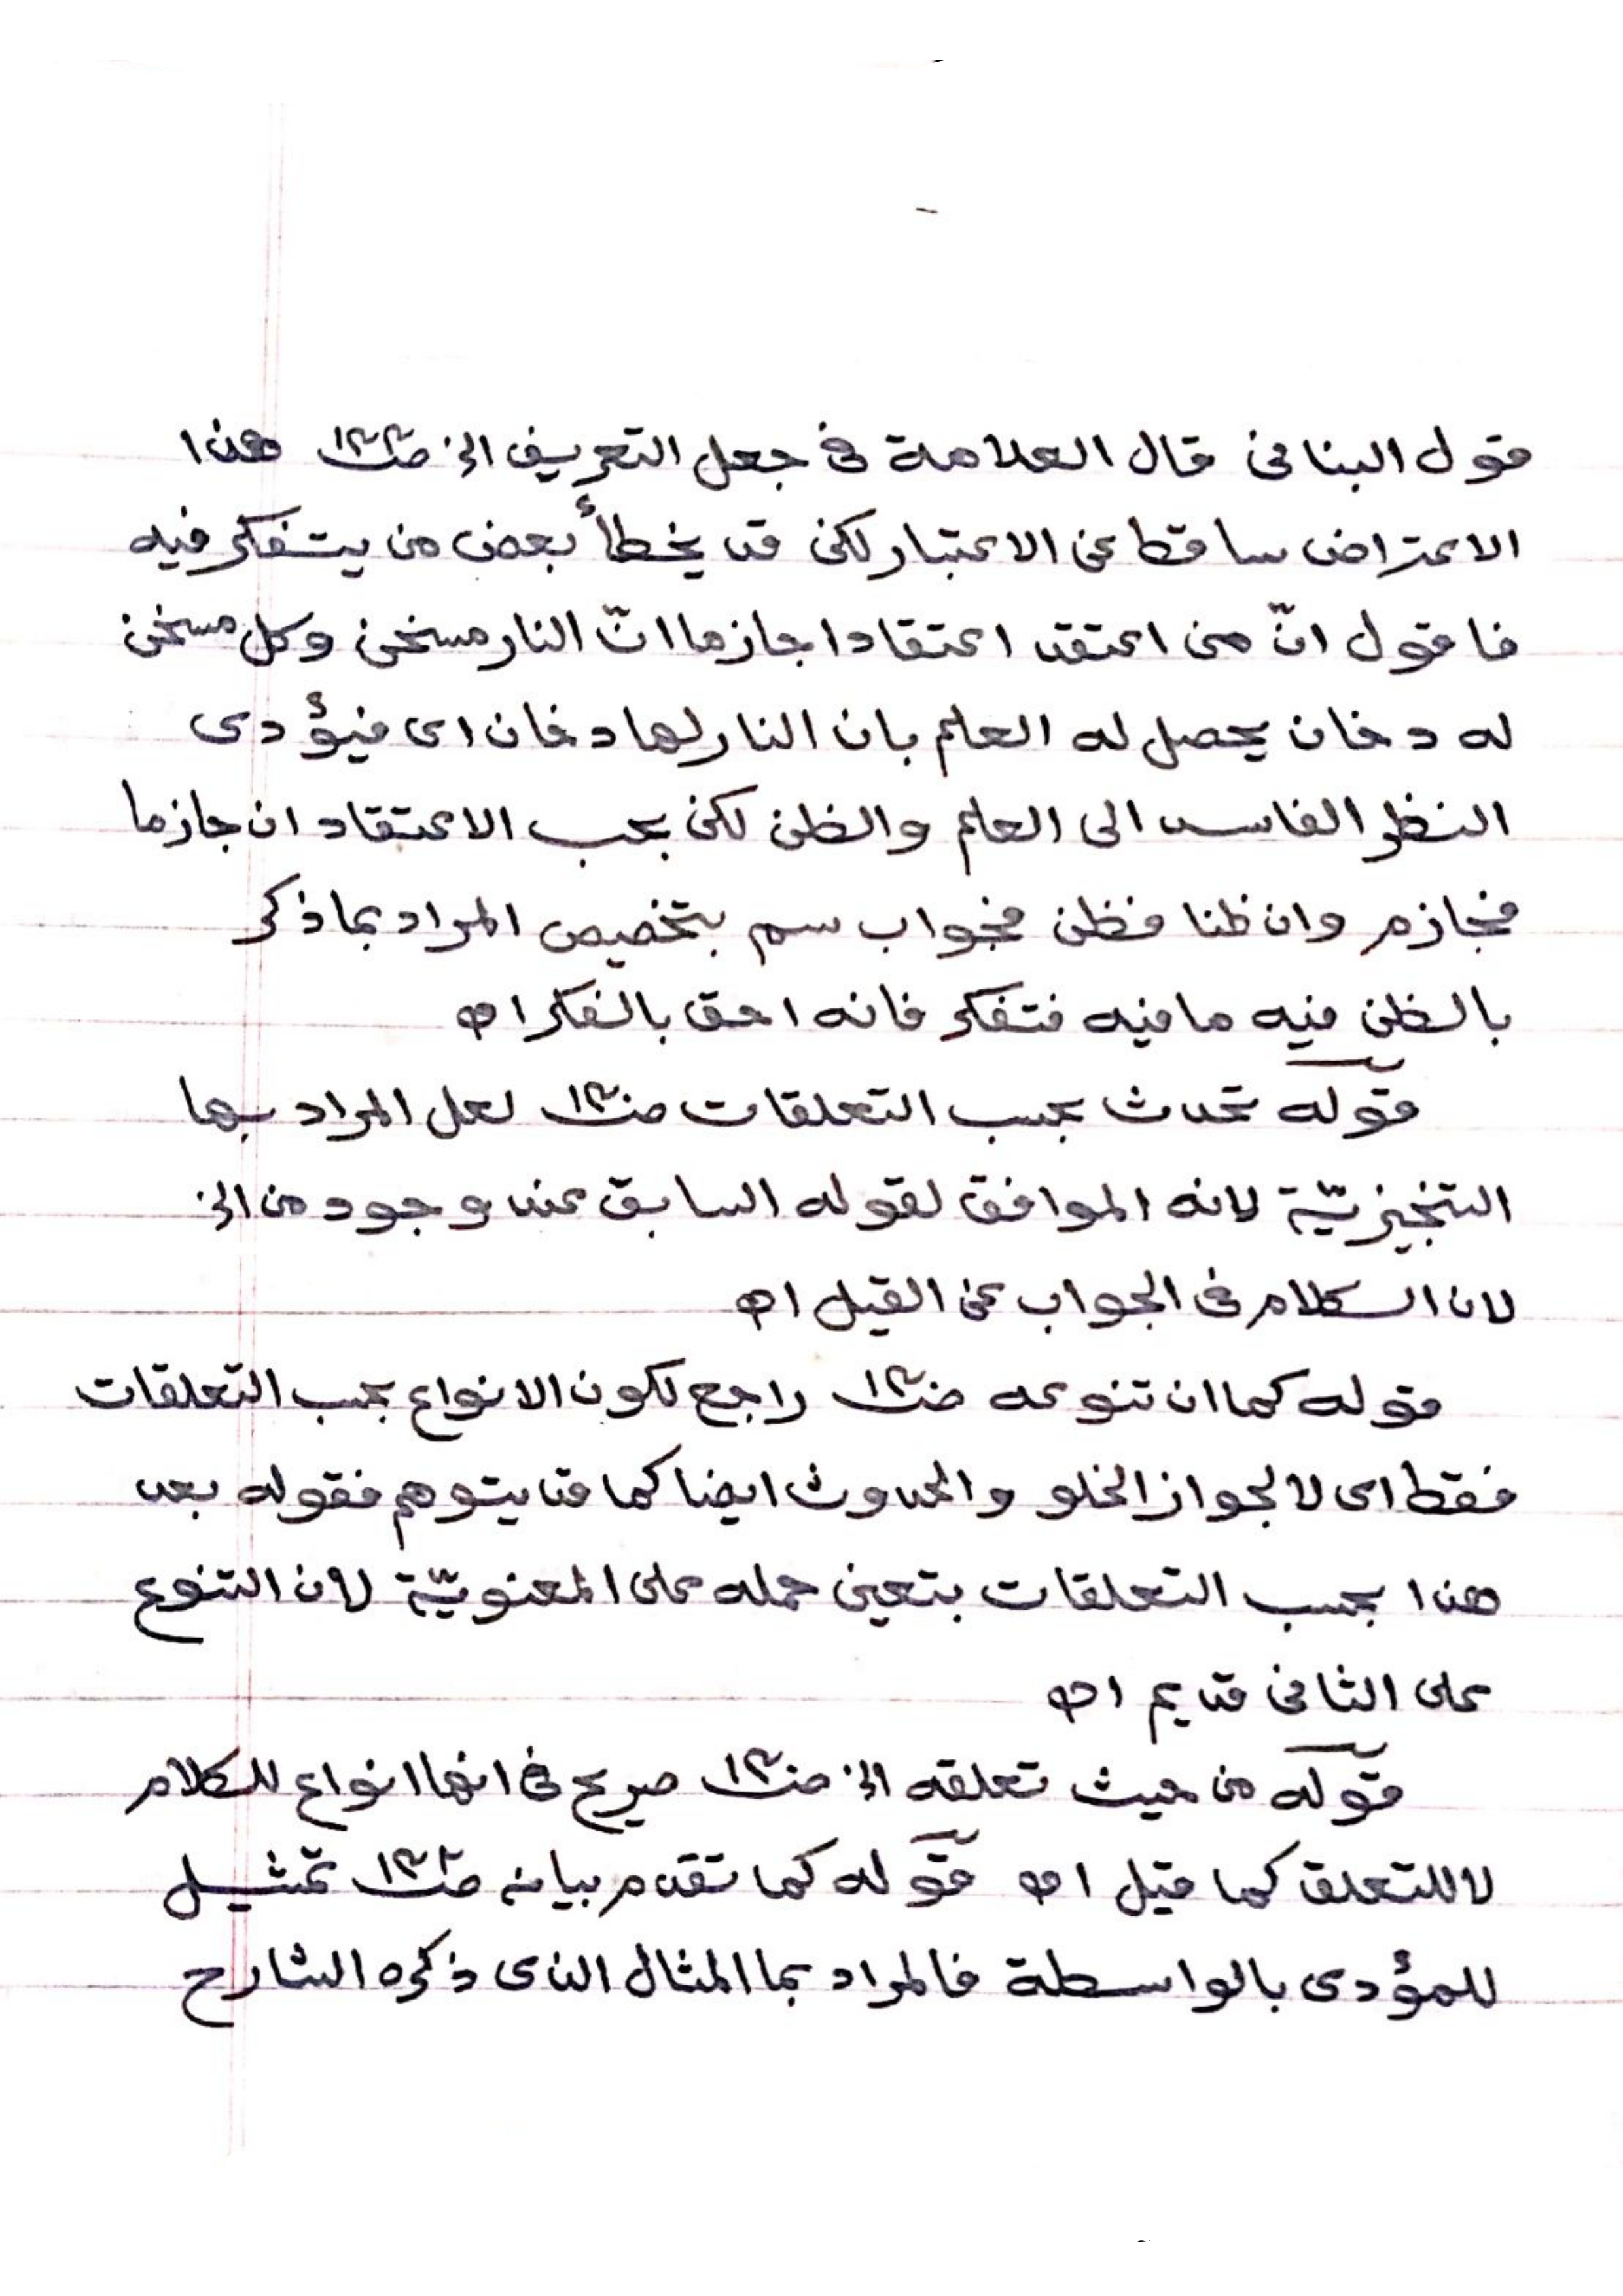 قول البنانى قال العلامة فى جعل التعريف الخ صـ١٤٤ هذا
الاعتراض ساقط عن الاعتبار لكن قد يخطأ بعض من يتفكر فيه
فاقول انّ من اعتقد اعتقادا جازما انّ النار مسخن وكل مسخن
له دخان يحصل له العلم بان النار لها دخان اى فيؤدى
النظر الفاسد الى العلم والظن لكن بحسب الاعتقاد ان جازما
فجازم وان ظنا فظن فجواب سم بتخصيص المراد بما ذكر
بالظن فيه ما فيه فتفكر فانه احق بالفكر اھ
قوله تحدث بحسب التعلقات لعل المراد بها
التنجيزيّة لانه الموافق لقوله السابق عند وجود من الخ
لان الكلام فى الجواب عن القيل اھ
قوله كما ان تنوعه راجع لكون الانواع بحسب التعلقات
فقط اى لا لجواز الخلو والحدوث ايضا كما قد يتوهم فقوله بعد
هذا بحسب التعلقات يتعين حمله على المعنويّة لان التنوع
على الثانى قديم اھ
قوله من حيث تعلقه الخ صريح فى انها انواع للكلام
لا للتعلق كما قيل اھ قوله كما تقدم بيانه تمثيل
للمؤدى بالواسطة فالمراد بما المثال الذى ذكره الشارح